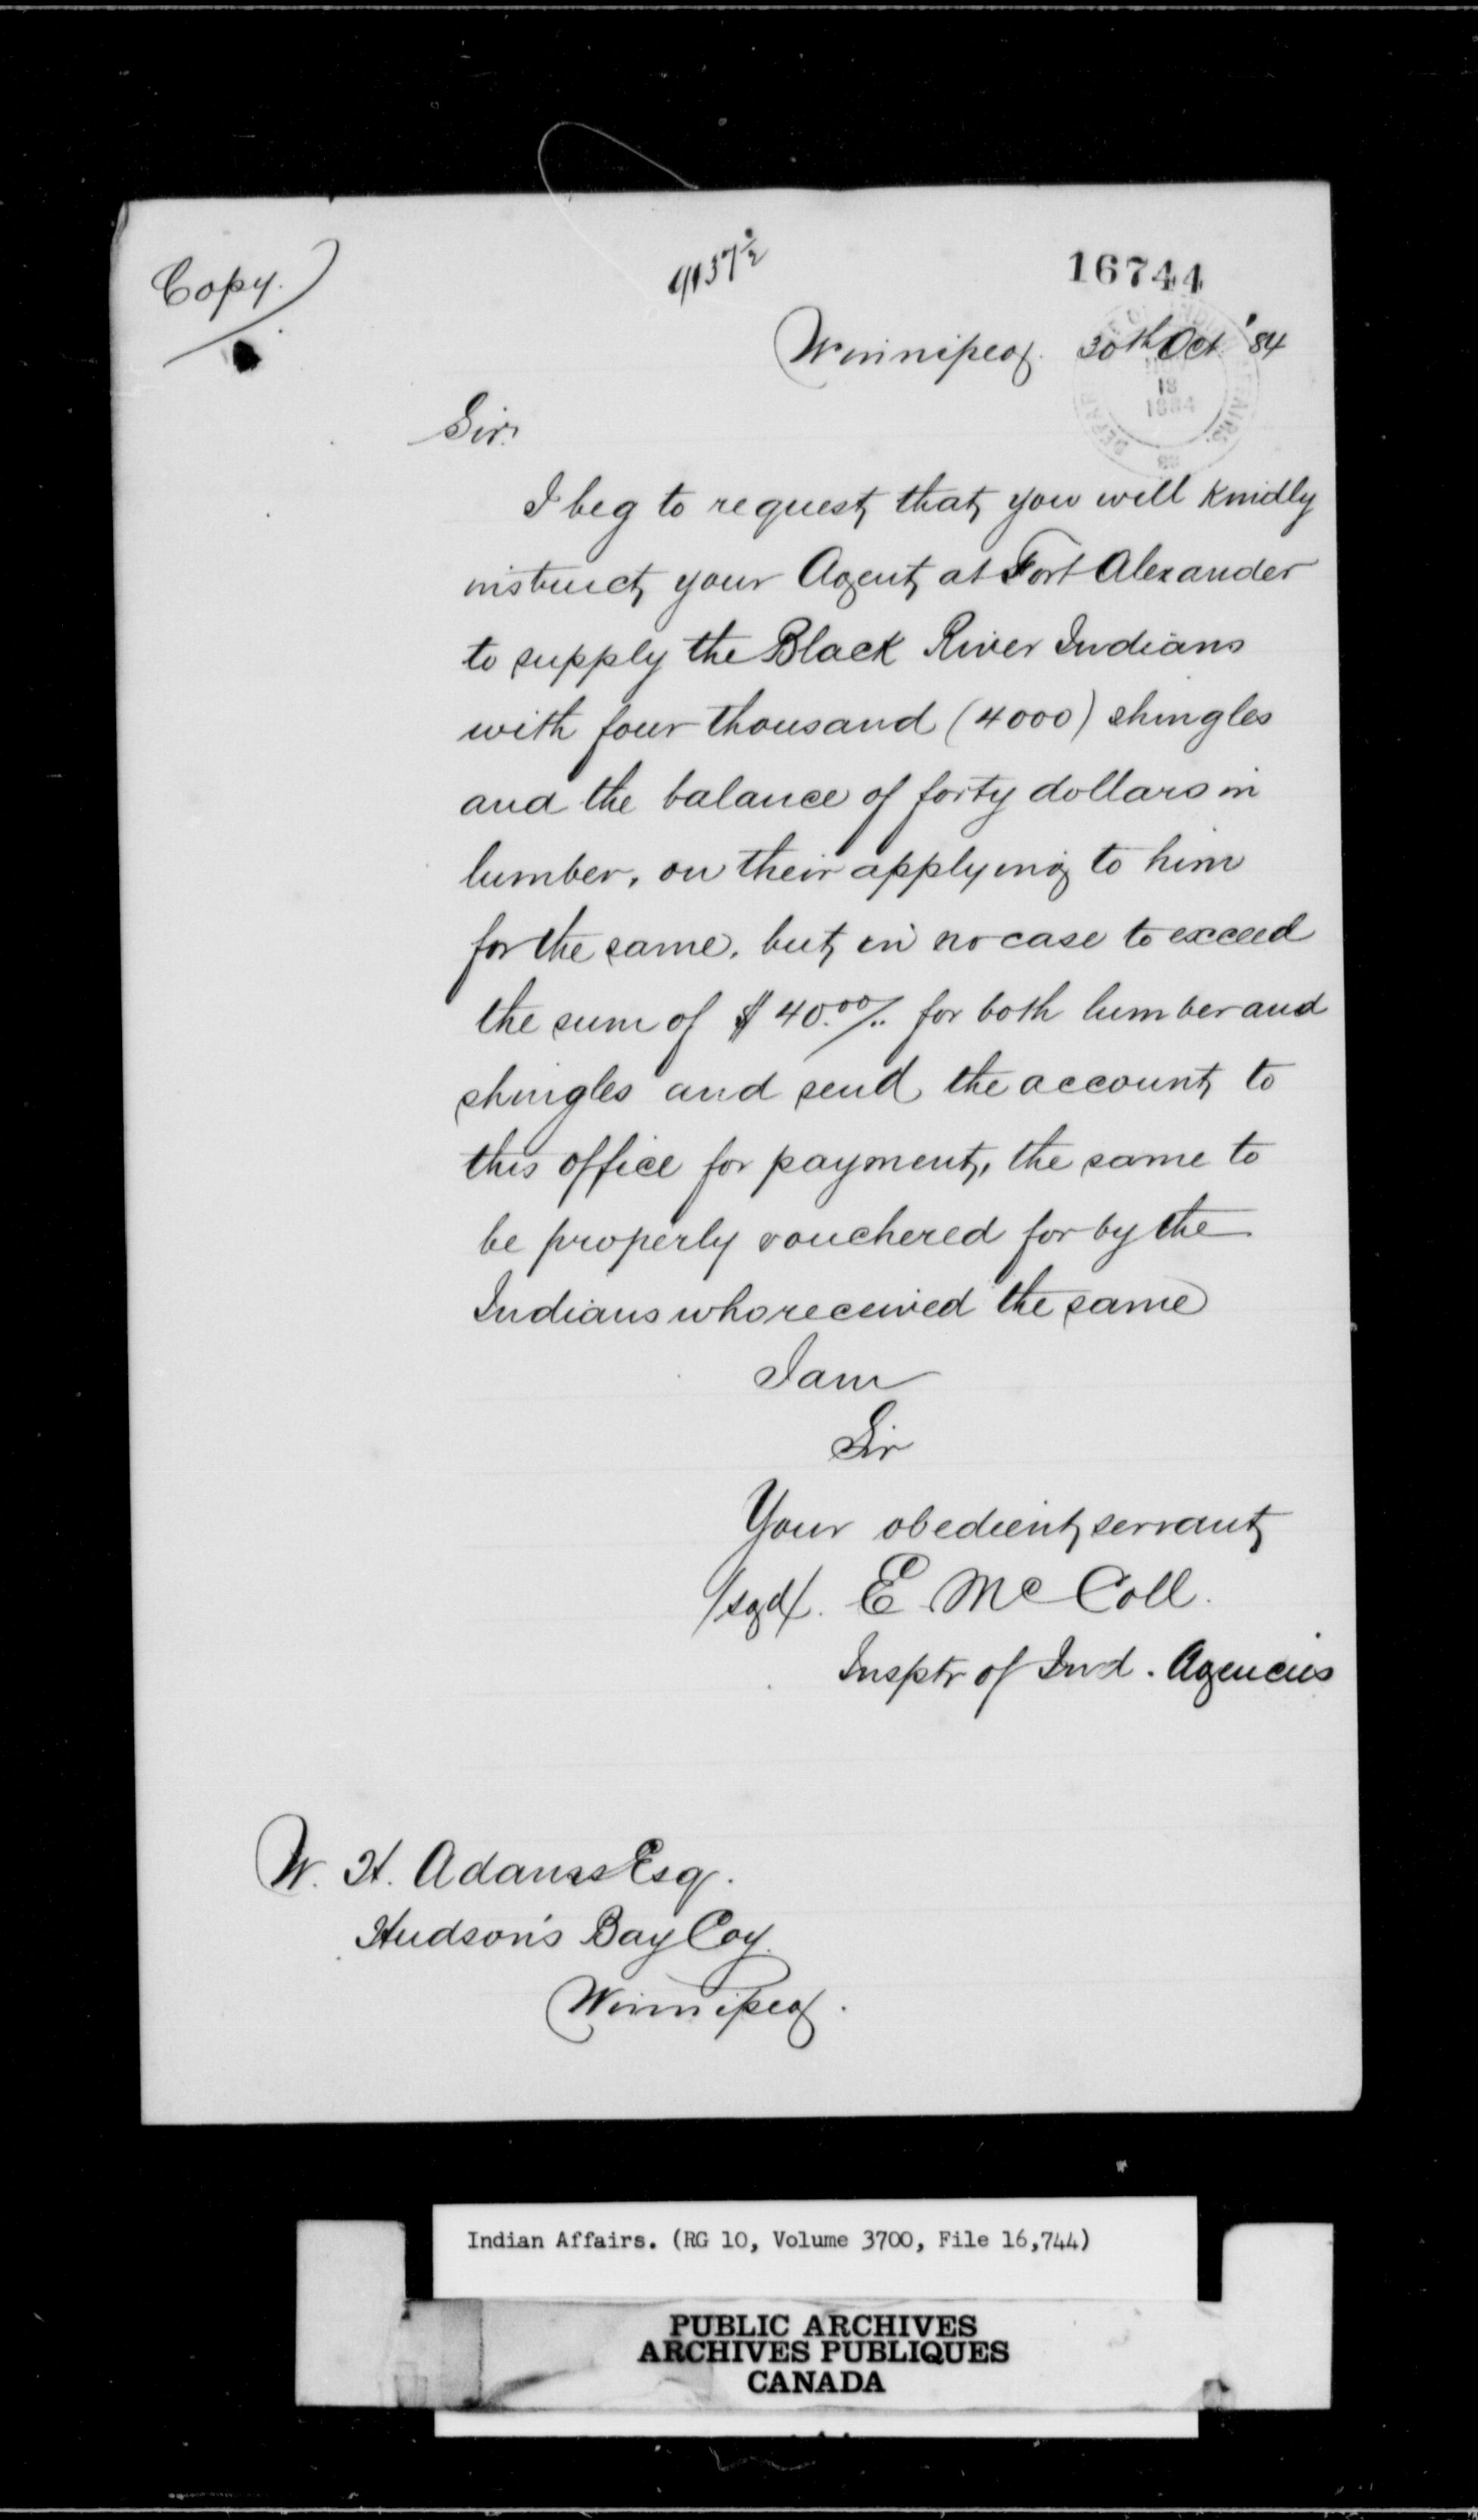 Copy.
9137½
16744
Winnipeg. 30th Oct. '84
18
1884
Sir.
I beg to request that you will kindly
instruct your Agent at Fort Alexander
to supply the Black River Indians
with four thousand (4000) shingles
and the balance of forty dollars in
lumber, on their applying to him
for the same, but in no case to exceed
the sum of $40.00/.. for both lumber and
shingles and send the account to
this office for payment, the same to
be properly vouchered for by the
Indians who received the same
I am
Sir
Your obedient servant
/sgd/. E McColl.
Insptr of Ind. Agencies
W. H. Adams Esq.
Hudson's Bay Coy.
Winnipeg.
Indian Affairs. (RG 10, Volume 3700, File 16,744)
PUBLIC ARCHIVES
ARCHIVES PUBLIQUES
CANADA